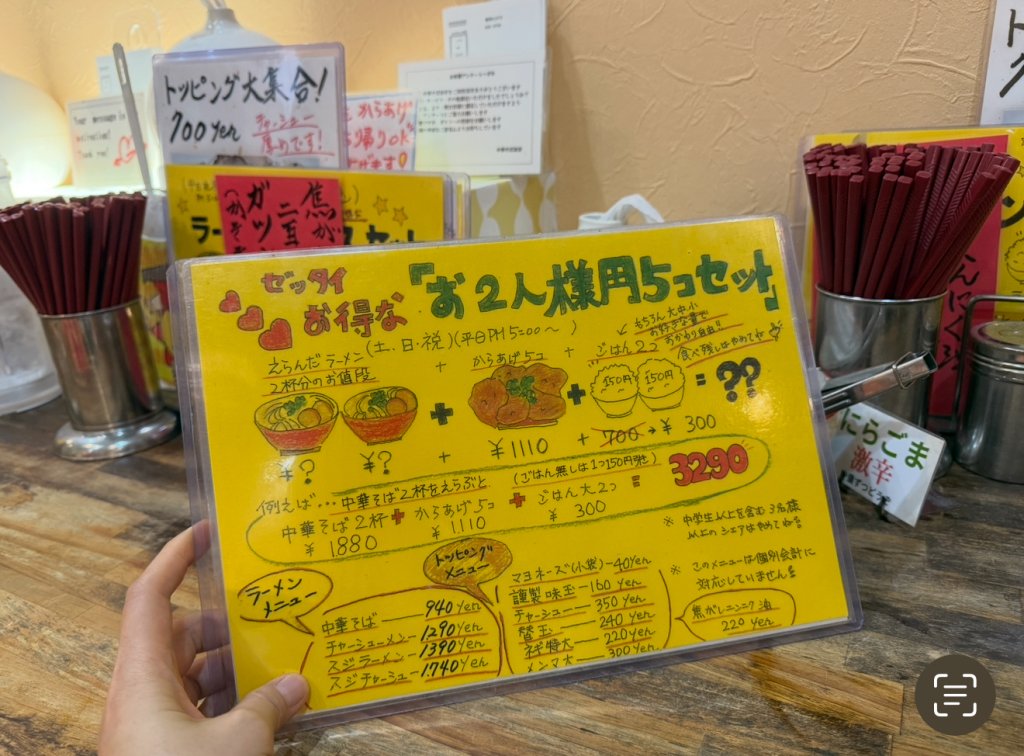 トッピング大集合!
700yen
チャーシュー
厚めです!
からあげ
帰りok
Your message is
焦が
ニ
ガツ
ゼッタイ
お得な
『お2人様用5コセット』
(土、日・祝)(平日PM5:00〜)
えらんだラーメン
2杯分のお値段
+
からあげ5コ
+
ごはん2コ
もちろん大中小
お好きな量で
おかわり自由!!
食べ残しはやめてネ
150円
150円
+
+
=
??
¥?
¥?
¥1110
+
700→¥300
例えば…中華そば2杯をえらぶと
(ごはん無しは1つ150円引き)
中華そば2杯+からあげ5コ+ごはん大2コ=3290
¥1880
¥1110
¥300
※中学生以上を含む3名様
以上のシェアはやめてね
※このメニューは個別会計に
対応していません
ラーメン
メニュー
中華そば 940yen
チャーシューメン 1290yen
スジラーメン 1390yen
スジチャーシュー 1740yen
トッピング
メニュー
マヨネーズ(小袋)40yen
謹製味玉 160yen
チャーシュー 350yen
替玉 240yen
ネギ特大 220yen
メンマ大 300yen
焦がしニンニク油
220yen
にらごま
激辛